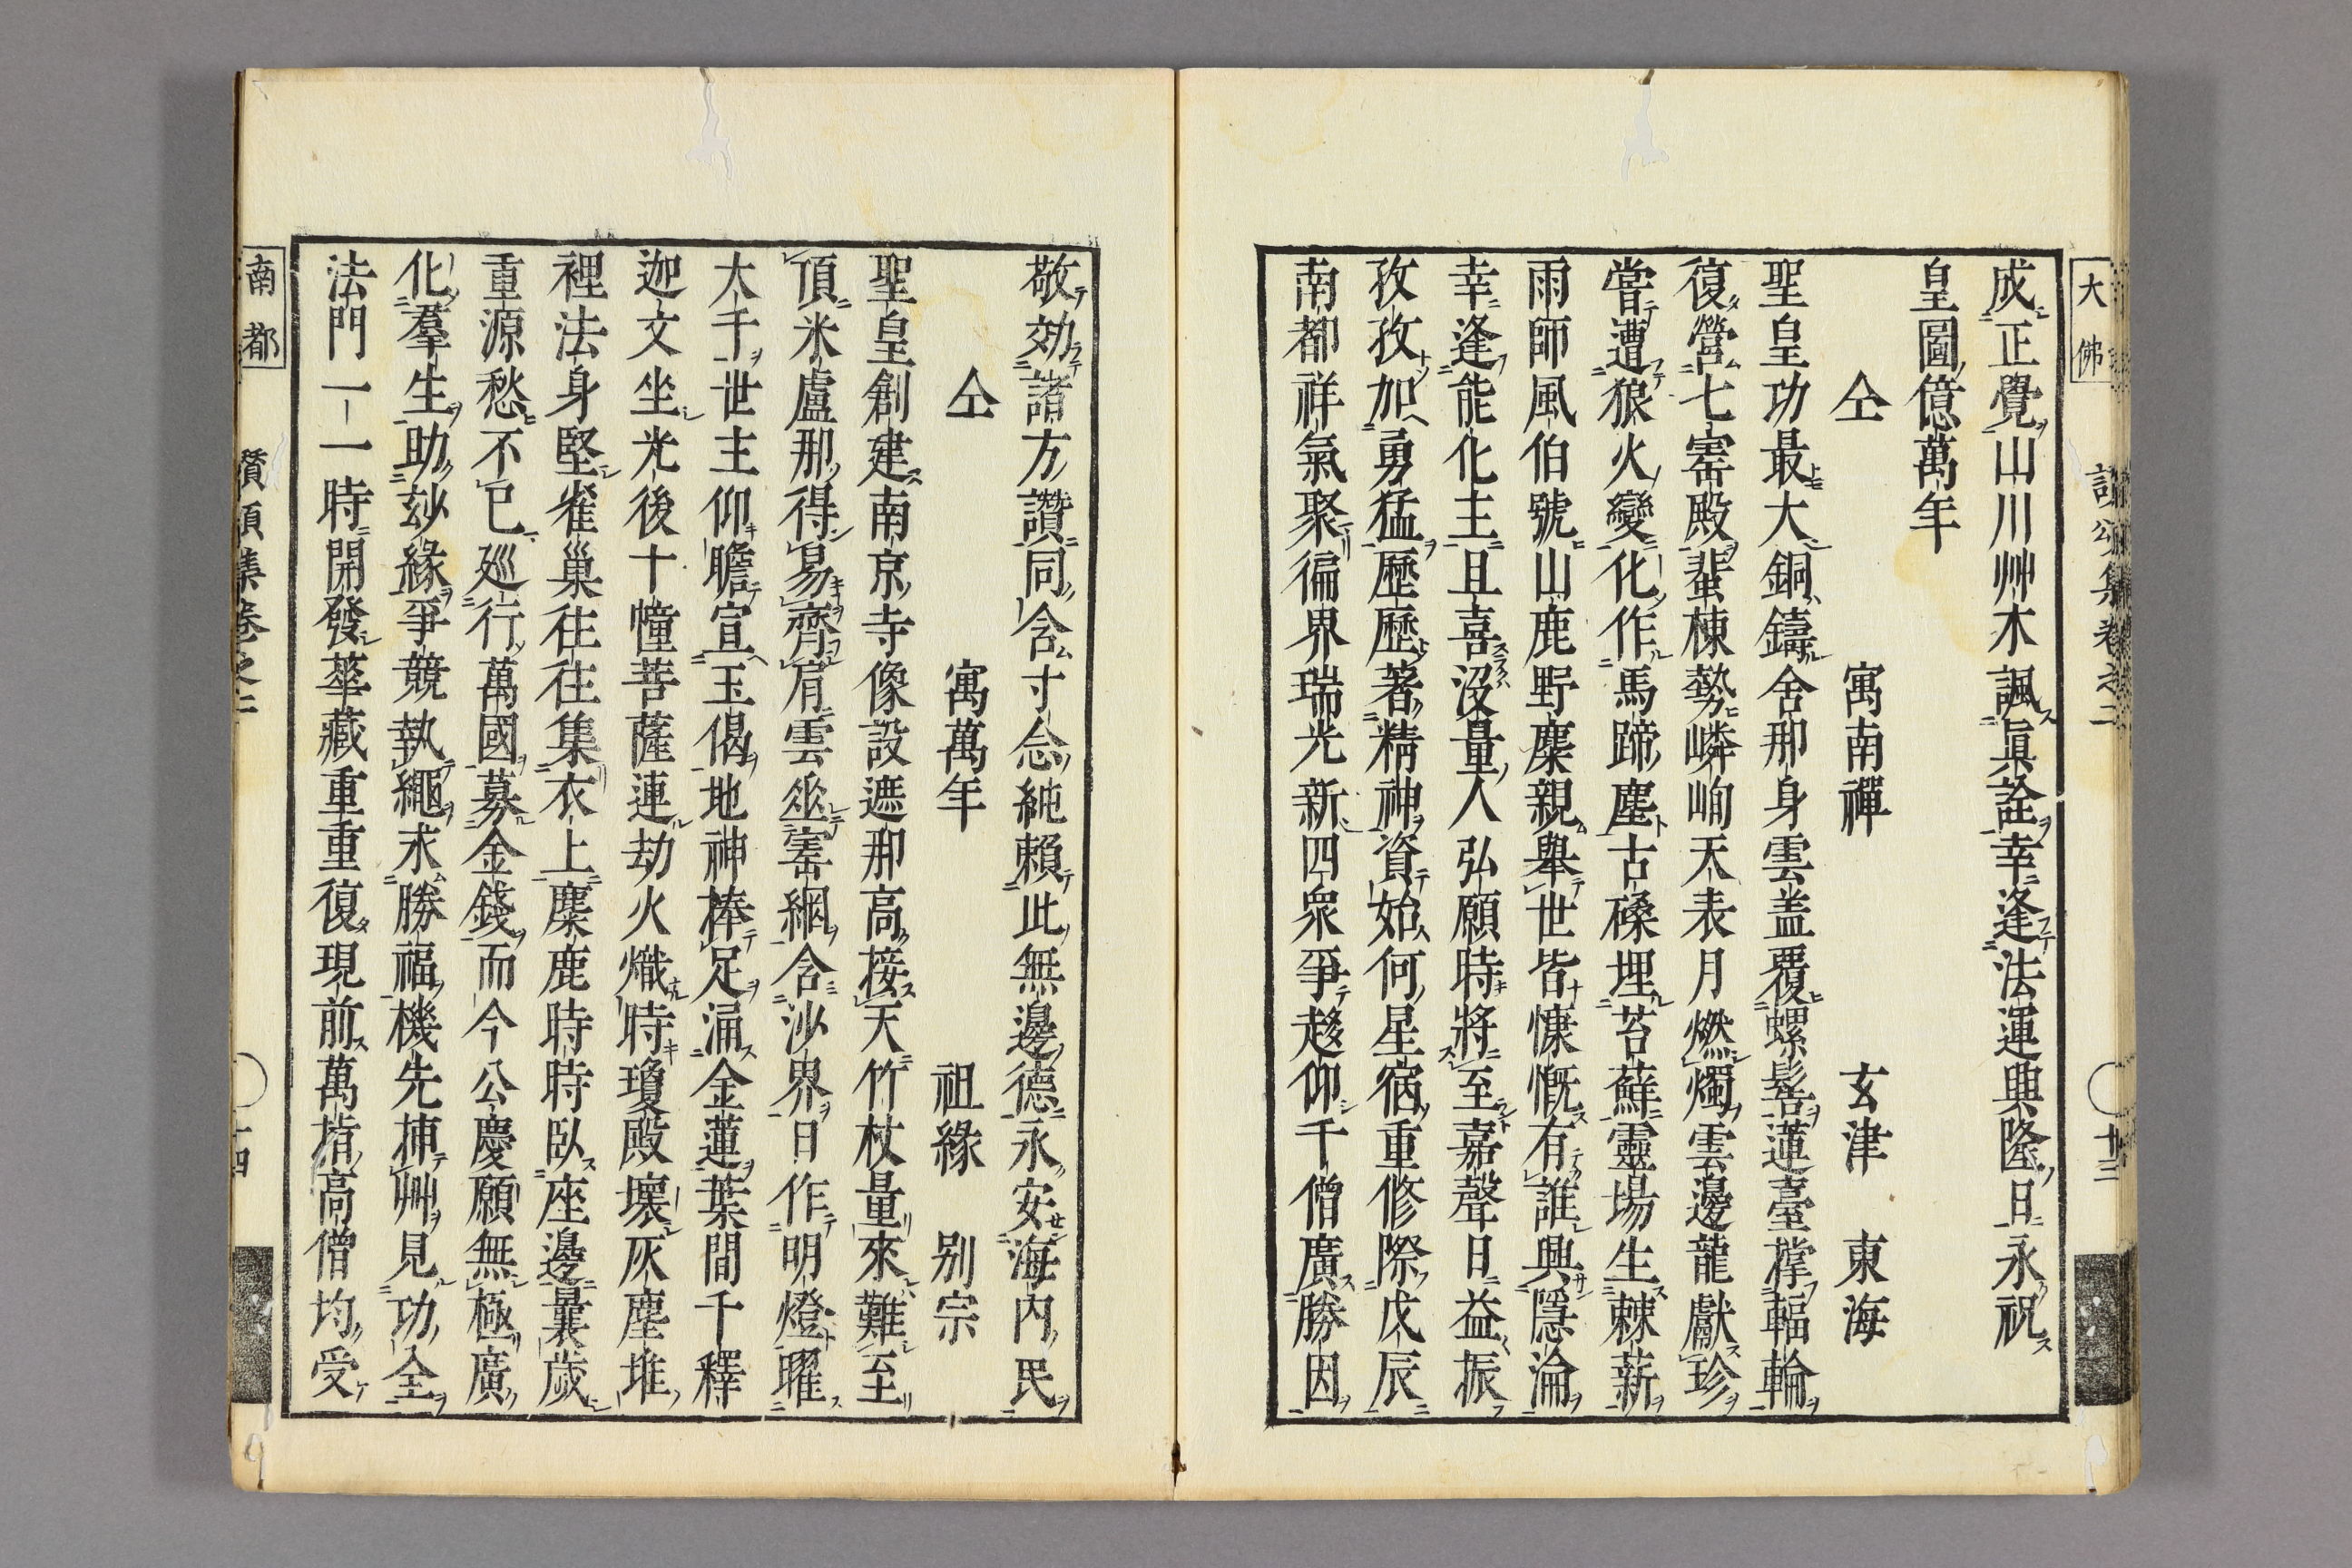 大佛
讃頌集卷之二
十三
成正覺山川艸木諷眞詮幸逢法運興隆日永祝
皇圖億萬年
仝 寓南禪 玄津 東海
聖皇功最大銅鑄舍那身雲盖覆螺髻蓮臺撑輻輪
復營七寳殿蜚棟勢嶙峋天表月燃燭雲邊龍獻珍
嘗遭狼火變化作馬蹄塵古磉埋苔蘚靈場生棘薪
雨師風伯號山鹿野麋親擧世皆慷慨有誰興隱淪
幸逢能化主且喜沒量人弘願時將至嘉聲日益振
孜孜加勇猛歷歷著精神資始何星宿重修際戊辰
南都祥氣聚徧界瑞光新四衆爭趍仰千僧廣勝因
敬効諸方讚同含寸念純賴此無邊德永安海内民
仝 寓萬年 祖緣 別宗
聖皇創建南京寺像設遮那高接天竹杖量來難至
頂米盧那得易齊肩雲埀寳網含沙界日作明燈曜
大千世主仰瞻宣玉偈地神捧足涌金蓮葉間千釋
迦文坐光後十幢菩薩連劫火熾時瓊殿壞灰塵堆
裡法身堅雀巢往往集衣上麋鹿時時臥座邊曩歲
重源愁不已廵行萬國募金錢而今公慶願無極廣
化羣生助玅緣爭競執繩求勝福機先揷艸見功全
法門一一時開發華藏重重復現前萬指高僧均受
南都
讃頌集卷之二
十四